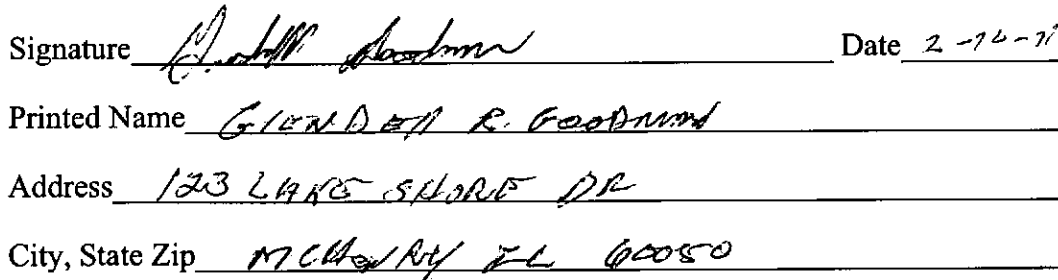 Signature Date
Printed Name R. GOODMAN
Address 123 LAKE SHORE DR
City, State Zip MCHENRY IL 60050